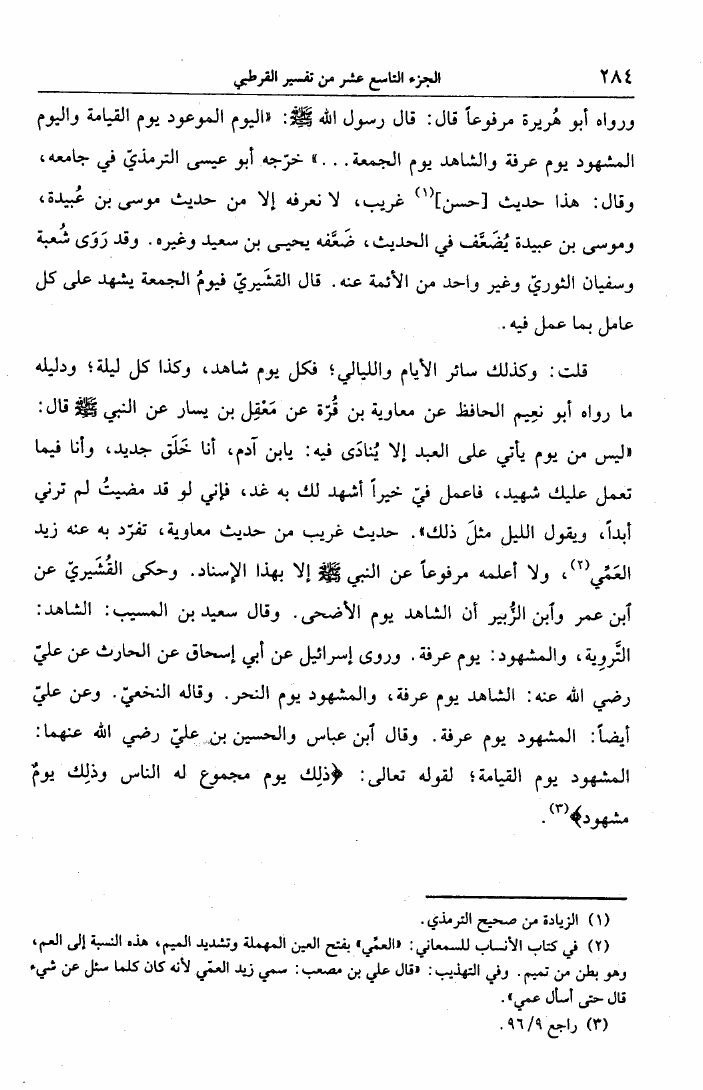 ٢٨٤
الجزء التاسع عشر من تفسير القرطبي
ورواه أبو هُريرة مرفوعاً قال: قال رسول الله ﷺ: «اليوم الموعود يوم القيامة واليوم
المشهود يوم عرفة والشاهد يوم الجمعة...» خرّجه أبو عيسى الترمذيّ في جامعه،
وقال: هذا حديث [حسن](١) غريب، لا نعرفه إلا من حديث موسى بن عُبيدة،
وموسى بن عبيدة يُضَعَّف في الحديث، ضَعَّفه يحيى بن سعيد وغيره. وقد رَوَى شُعبة
وسفيان الثوريّ وغير واحد من الأئمة عنه. قال القشَيري فيومُ الجمعة يشهد على كل
عامل بما عمل فيه.
قلت: وكذلك سائر الأيام والليالي؛ فكل يوم شاهد، وكذا كل ليلة؛ ودليله
ما رواه أبو نعِيم الحافظ عن معاوية بن قُرّة عن مَعْقِل بن يسار عن النبي ﷺ قال:
«ليس من يوم يأتي على العبد إلا يُنادَى فيه: يابن آدم، أنا خَلَق جديد، وأنا فيما
تعمل عليك شهيد، فاعمل فيّ خيراً أشهد لك به غد، فإني لو قد مضيتُ لم ترني
أبداً، ويقول الليل مثلَ ذلك». حديث غريب من حديث معاوية، تفرّد به عنه زيد
العَمِّي(٢)، ولا أعلمه مرفوعاً عن النبي ﷺ إلا بهذا الإسناد. وحكى القُشَيريّ عن
ٱبن عمر وٱبن الزُّبير أن الشاهد يوم الأضحى. وقال سعيد بن المسيب: الشاهد:
التَّروِية، والمشهود: يوم عرفة. وروى إسرائيل عن أبي إسحاق عن الحارث عن عليّ
رضي الله عنه: الشاهد يوم عرفة، والمشهود يوم النحر. وقاله النخعيّ. وعن عليّ
أيضاً: المشهود يوم عرفة. وقال ٱبن عباس والحسين بن عليّ رضي الله عنهما:
المشهود يوم القيامة؛ لقوله تعالى: ﴿ذلِك يوم مجموع له الناس وذلِك يومٌ
مشهود﴾(٣).
(١) الزيادة من صحيح الترمذي.
(٢) في كتاب الأنساب للسمعاني: «العمِّي» بفتح العين المهملة وتشديد الميم، هذه النسبة إلى العم،
وهو بطن من تميم. وفي التهذيب: «قال علي بن مصعب: سمي زيد العمّي لأنه كان كلما سئل عن شيء
قال حتى أسأل عمي».
(٣) راجع ٩٦/٩.